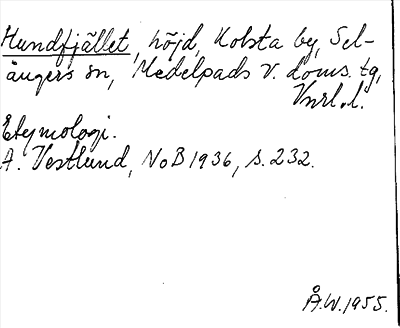 Hundfjället, höjd, Kolsta by, Sel-
ångers sn, Medelpads v. doms. tg,
Vnrl. l.
Etymologi.
A. Vestlund, NoB 1936, s. 232.
Å.W. 1955.